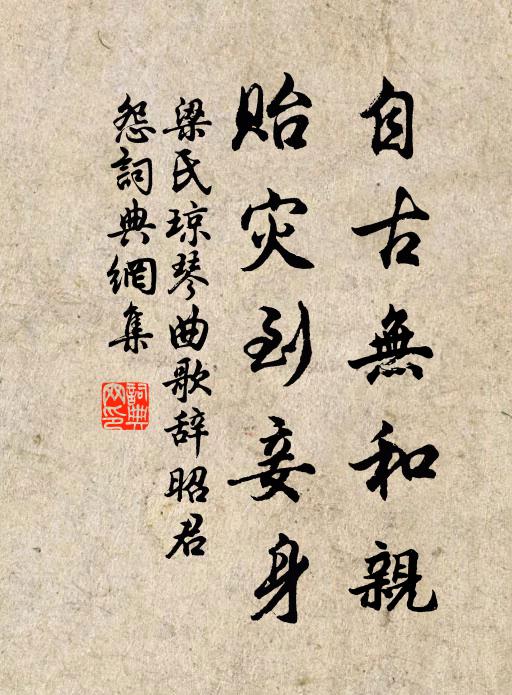 自古無和親
貽灾到妾身
梁氏琼琴曲歌辞昭君
怨詞典網集
詞典網印